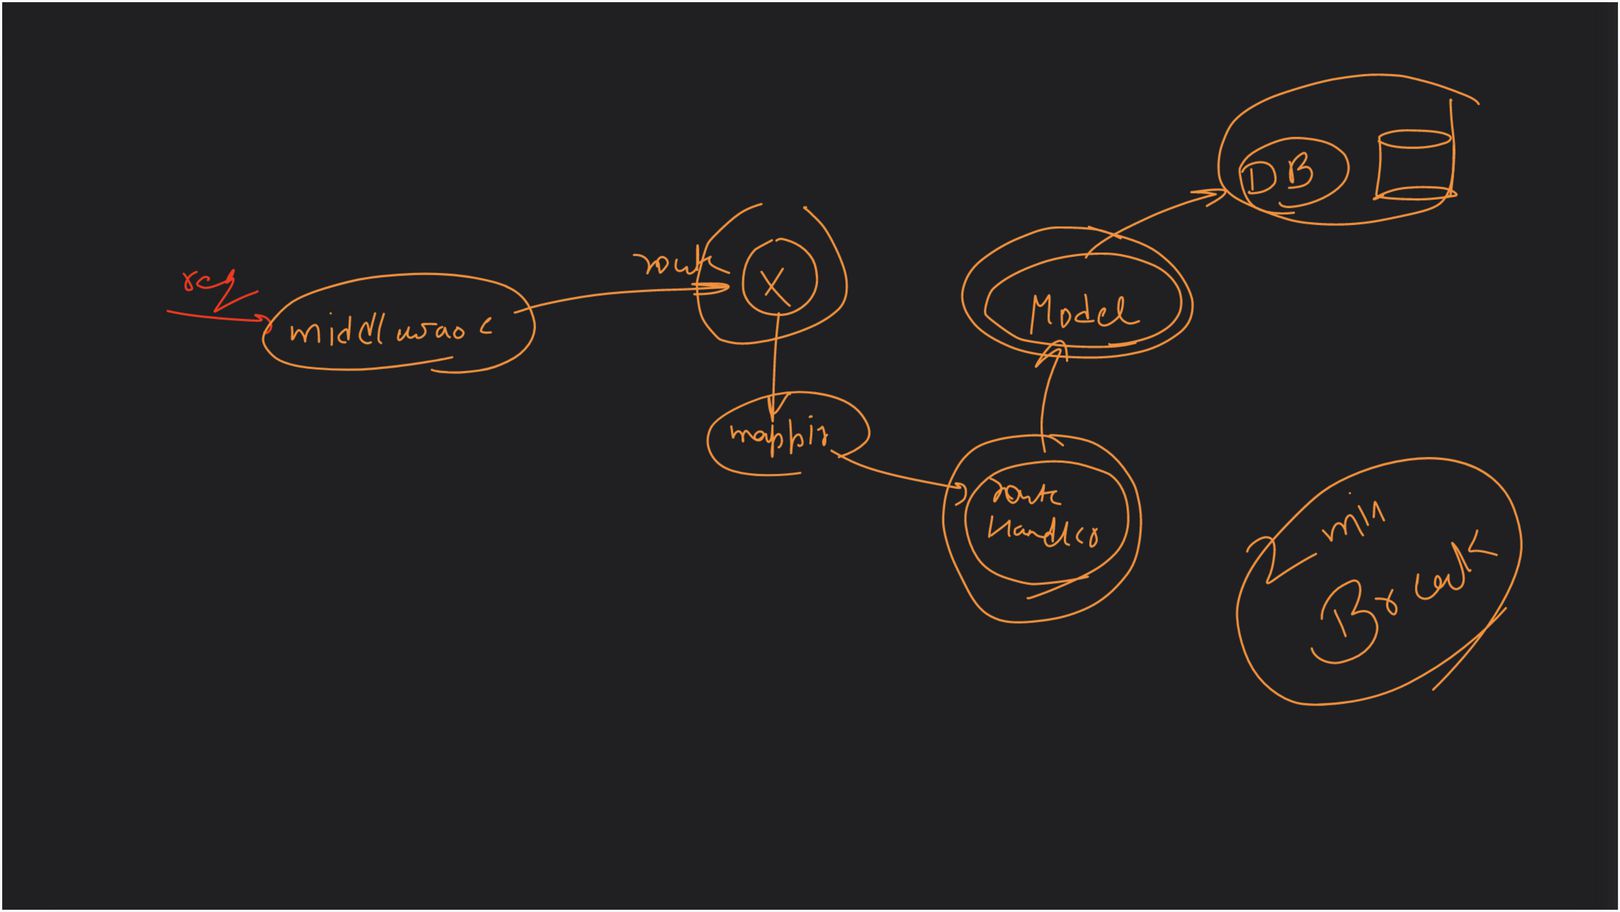 req
middleware
route
X
mapping
route
Handler
Model
DB
2 min
Break